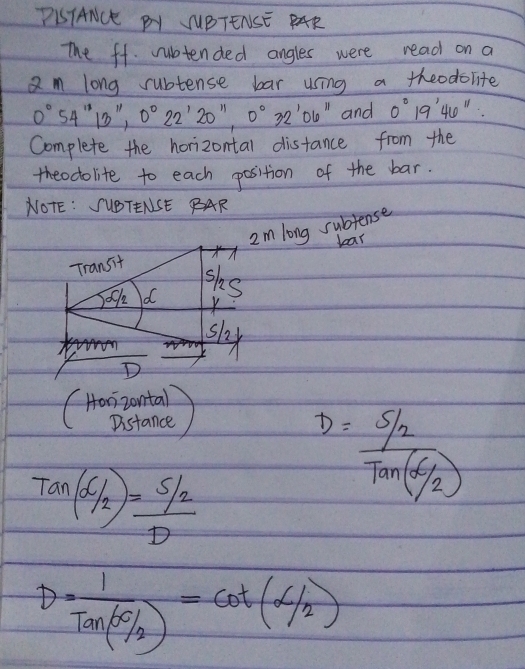 DISTANCE BY SUBTENSE BAR
The ff. subtended angles were read on a
2 m long subtense bar using a theodolite
0° 54" 13", 0° 22' 20", 0° 32' 06" and 0° 19' 46".
Complete the horizontal distance from the
theodolite to each position of the bar.
NOTE: SUBTENSE BAR
2m long subtense
bar
Transit
α/2 α
S/2 S
S/2
D
(Horizontal
Distance)
D = S/2
Tan(α/2)
Tan(α/2) = S/2
D
D = 1 = cot(α/2)
Tan(α/2)